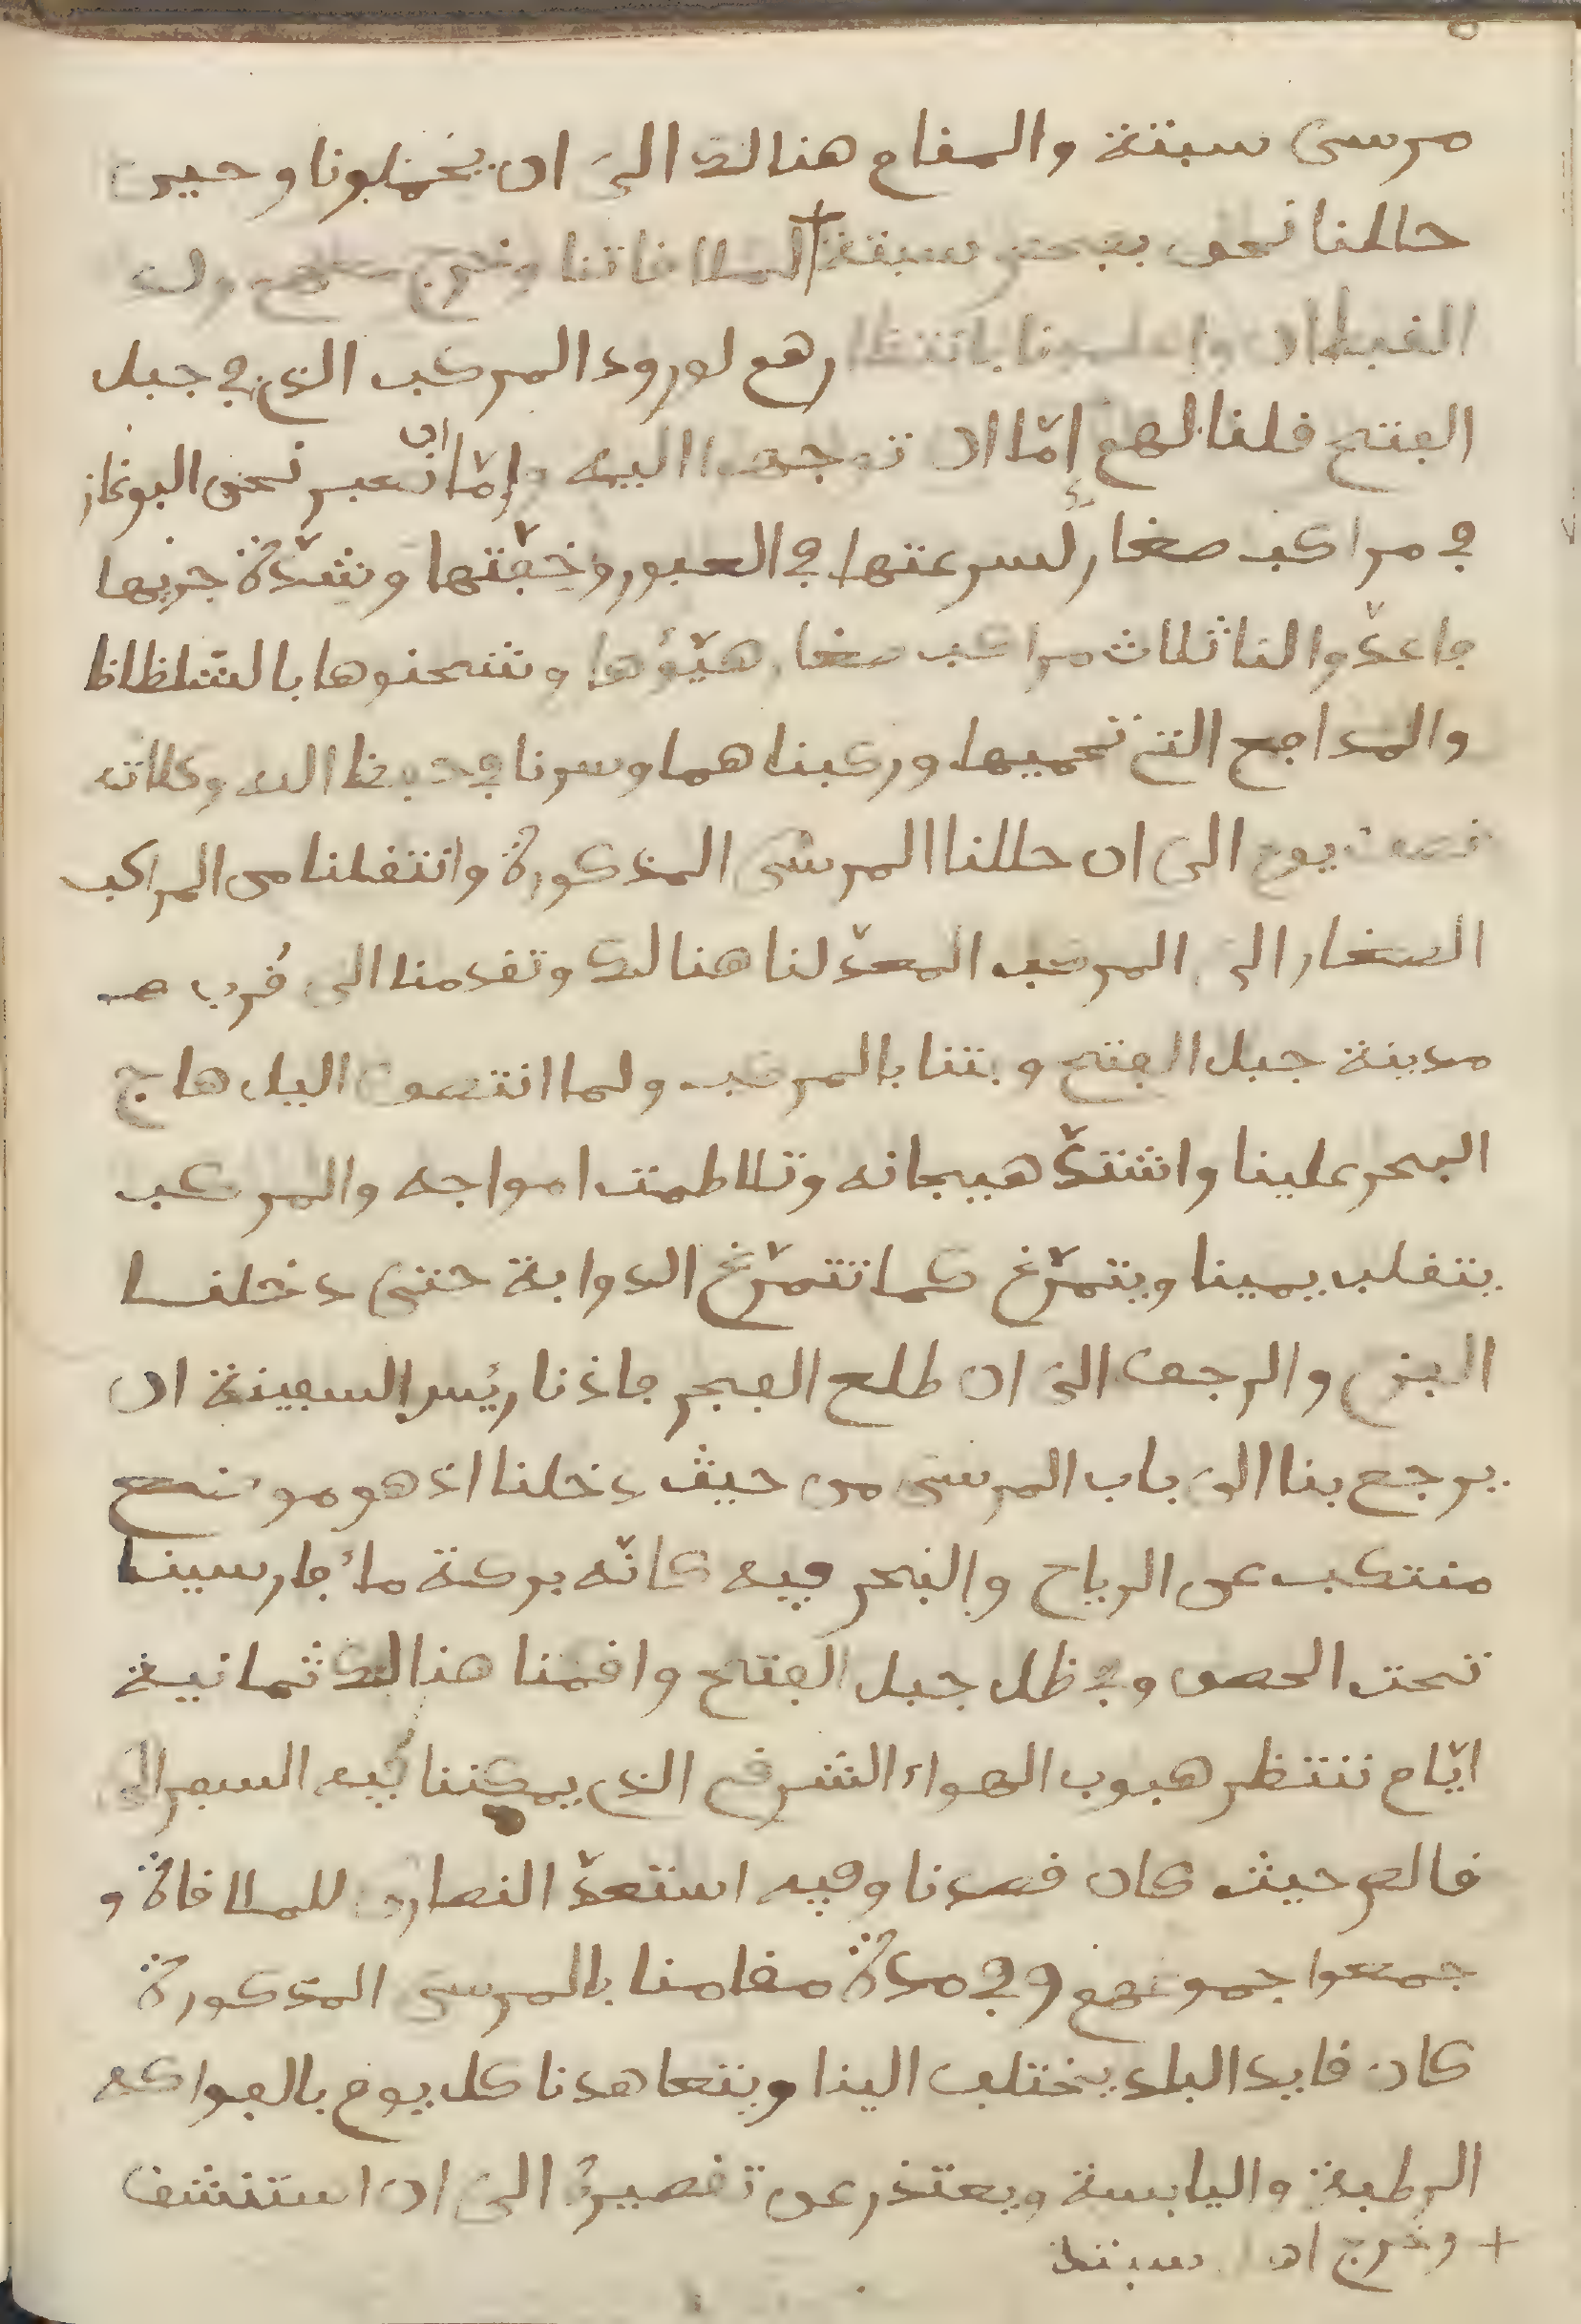 مرسى سبتة والمقام هنالك الى ان يحملونا وحين
حللنا نحو بحر سبتة + لملاقاتنا وخرج
القبطان واعلمونا بانتظارهم لورود المركب الذي في جبل
الفتح فلنا لهم إمّا ان توجهوا اليه وإمّا ان نعبر نحو البوغاز
في مراكب صغار لسرعتها في العبور وخفّتها وشدّة جريها
فاعدّوا لنا ثلاث مراكب صغار هيّؤها وشحنوها بالشلظاظ
والمدافع التي تحميها وركبناهما وسرنا في حفظ الله وكلاته
نصف يوم الى ان حللنا المرسى المذكورة وانتقلنا من المراكب
الصغار الى المركب المعدّ لنا هنالك وتقدمنا الى قرب
مدينة جبل الفتح وبتنا بالمركب ولما انتصف اليل هاج
البحر علينا واشتدّ هيجانه وتلاطمت امواجه والمركب
يتقلب يمينا ويتمرّغ كما تتمرّغ الدوابة حتى دخلنا
الفزع والرجف الى ان طلع الفجر فاذنا رئيس السفينة ان
يرجع بنا الى باب المرسى من حيث دخلنا اذ هو موضع
منتكب عن الرياح والبحر فيه كانّه بركة ماء فارسينا
تحت الحصن وفي ظل جبل الفتح واقمنا هنالك ثمانية
ايّام ننتظر هبوب الهواء الشرفي الذي يمكننا فيه السفر الى
قالص حيث كان قصدنا وفيه استعدّ النصارى للملاقاة و
جمعوا جموعهم وفي مدة مقامنا بالمرسى المذكورة
كان قايد البلد يختلف الينا ويتعاهدنا كل يوم بالفواكه
الرطبة واليابسة ويعتذر عن تقصيره الى ان استنشق
+ وخرج اهل سبتة